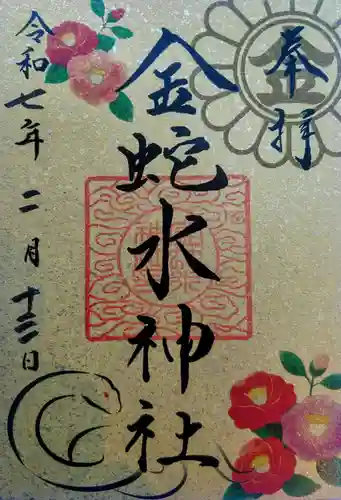 奉拝
金蛇水神社
令和七年二月十二日